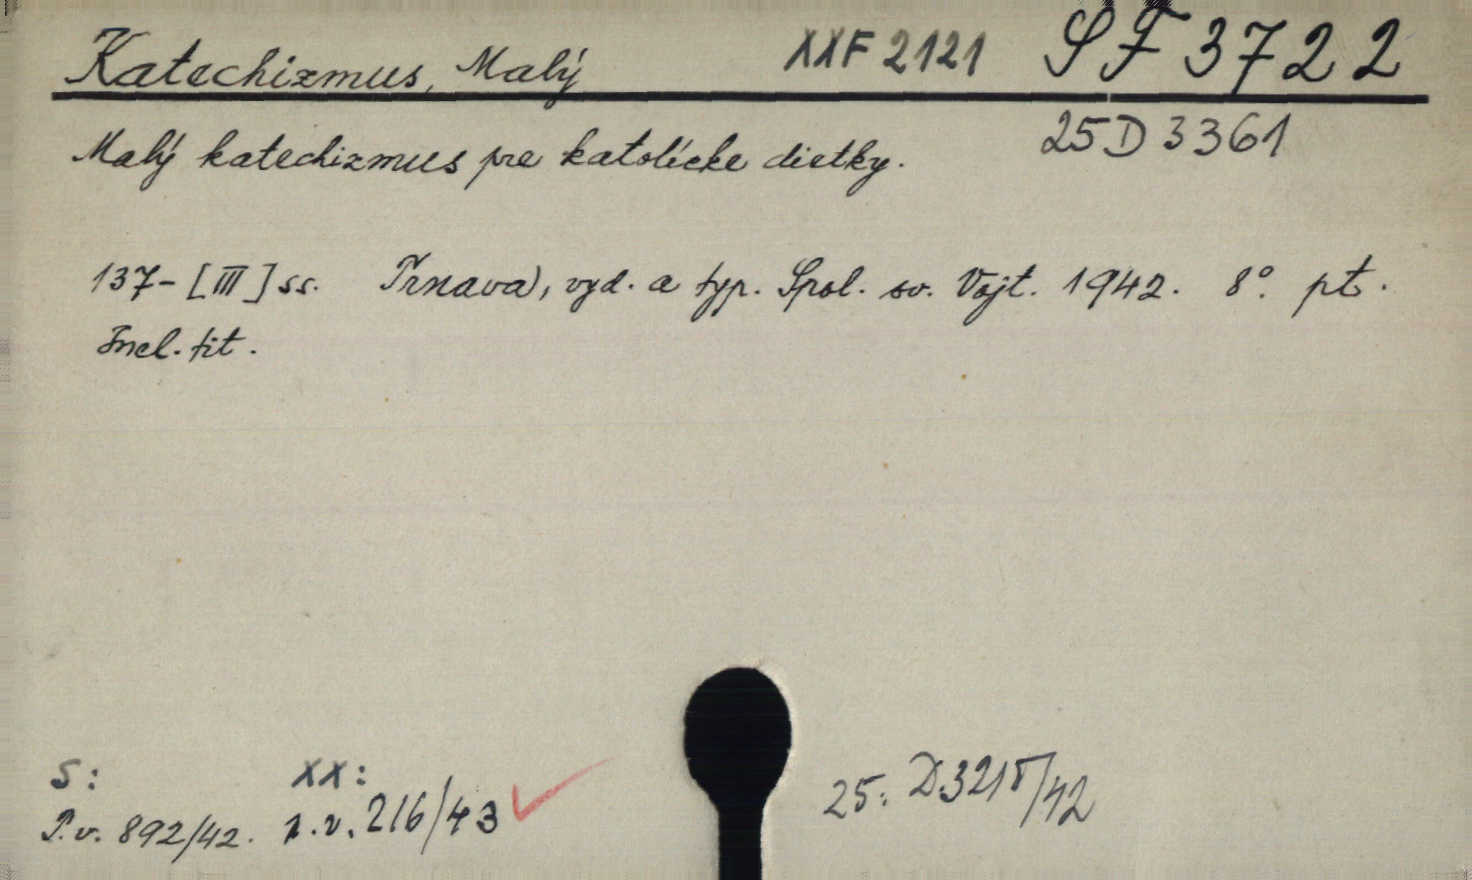 Katechizmus, Malý XXF 2121 SF 3722
25 D 3361
Malý katechizmus pre katolícke dietky.
137-[III] ss. Trnava, vyd. a typ. Spol. sv. Vojt. 1942. 8°. pt.
Incl. tit.
S: XX:
P.v. 892/42. p.v. 216/43 25: D.3215/42